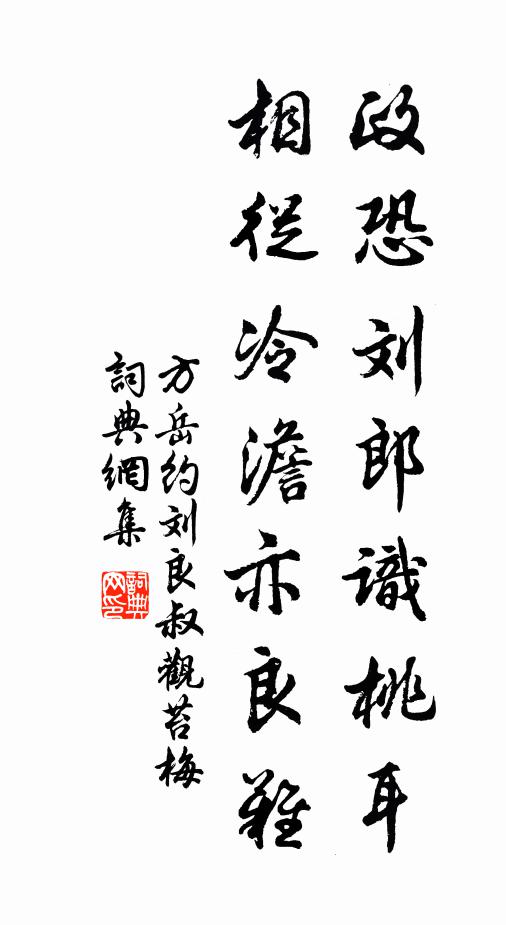 政恐刘郎識桃耳
相從冷澹亦良難
方岳约刘良叔觀苔梅
詞典網集
詞典网印